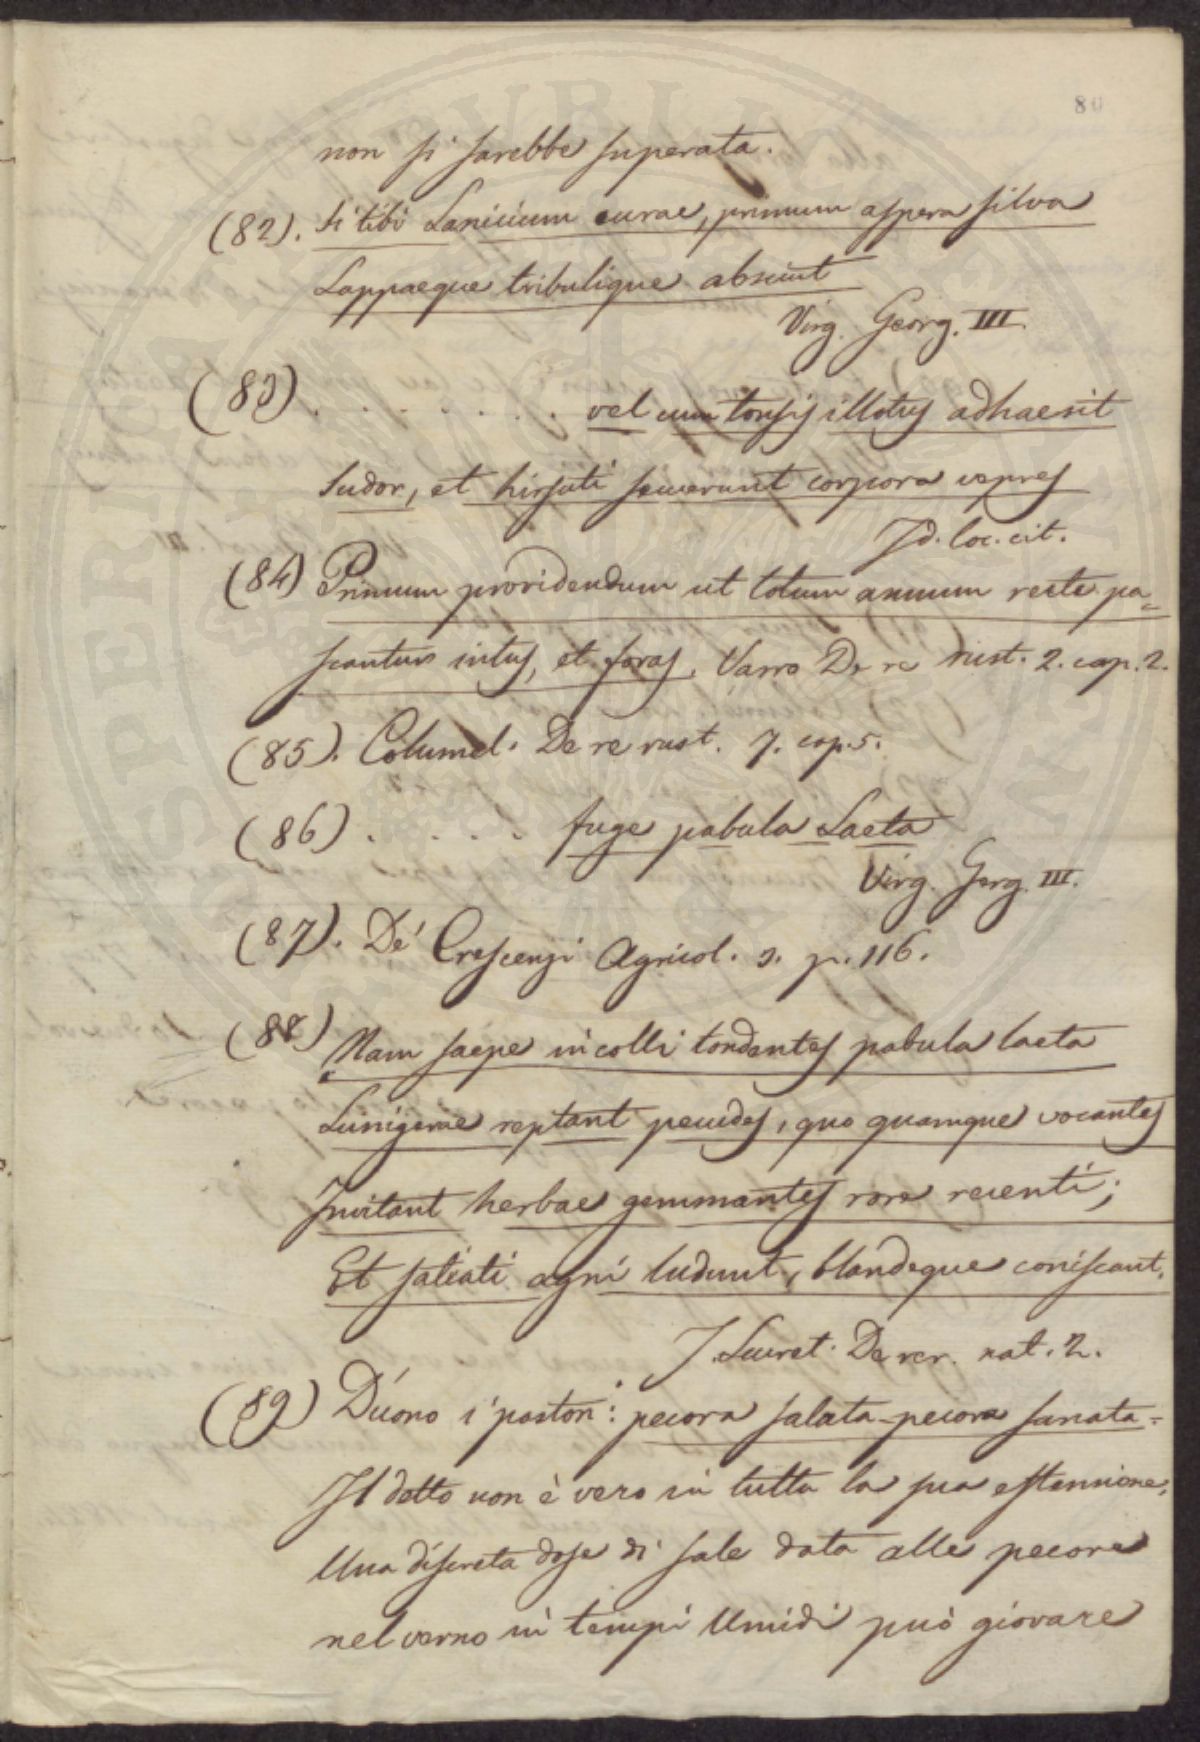 80
non si sarebbe superata.
(82). Si tibi Lanicium curae, primum aspera silva
Lappaeque tribulique absint
Virg. Georg. III.
(83) . . . . . . . vel cum tonsis illotus adhaesit
Sudor, et hirsuti secuerunt corpora vepres
Id. loc. cit.
(84) Primum providendum ut totum annum recte pa=
scantur intus, et foras. Varro De re rust. 2. cap. 2.
(85). Columel. De re rust. 7. cap. 5.
(86) . . . . . fuge pabula Laeta
Virg. Gerg. III.
(87). De' Crescenzi Agricol. 9. p. 116.
(88) Nam saepe in colli tondentes pabula laeta
Lanigerae reptant pecudes, quo quamque vocantes
Invitant herbae gemmantes rore recenti;
Et satiati agni ludunt, blandeque coniscant.
T. Lucret. De rer. nat. 2.
(89) Dicono i pastori: pecora salata-pecora sanata=
Il detto non è vero in tutta la sua estensione,
Una discreta dose di sale data alle pecore
nel verno in tempi Umidi può giovare